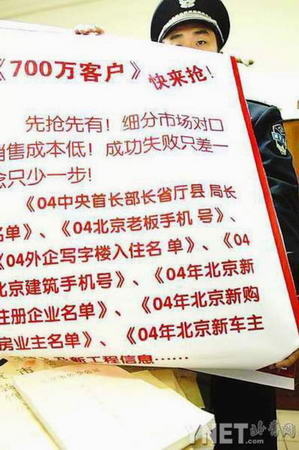 《700万客户》快来抢！
先抢先有！细分市场对口
销售成本低！成功失败只差一
念只少一步！
《04中央首长部长省厅县 局长
名单》、《04北京老板手机 号》、
《04外企写字楼入住名 单》、《04
北京建筑手机号》、《04年北京新
注册企业名单》、《04年北京新购
房业主名单》、《04年北京新车主
新工程信息……
YNET 北青网
.com